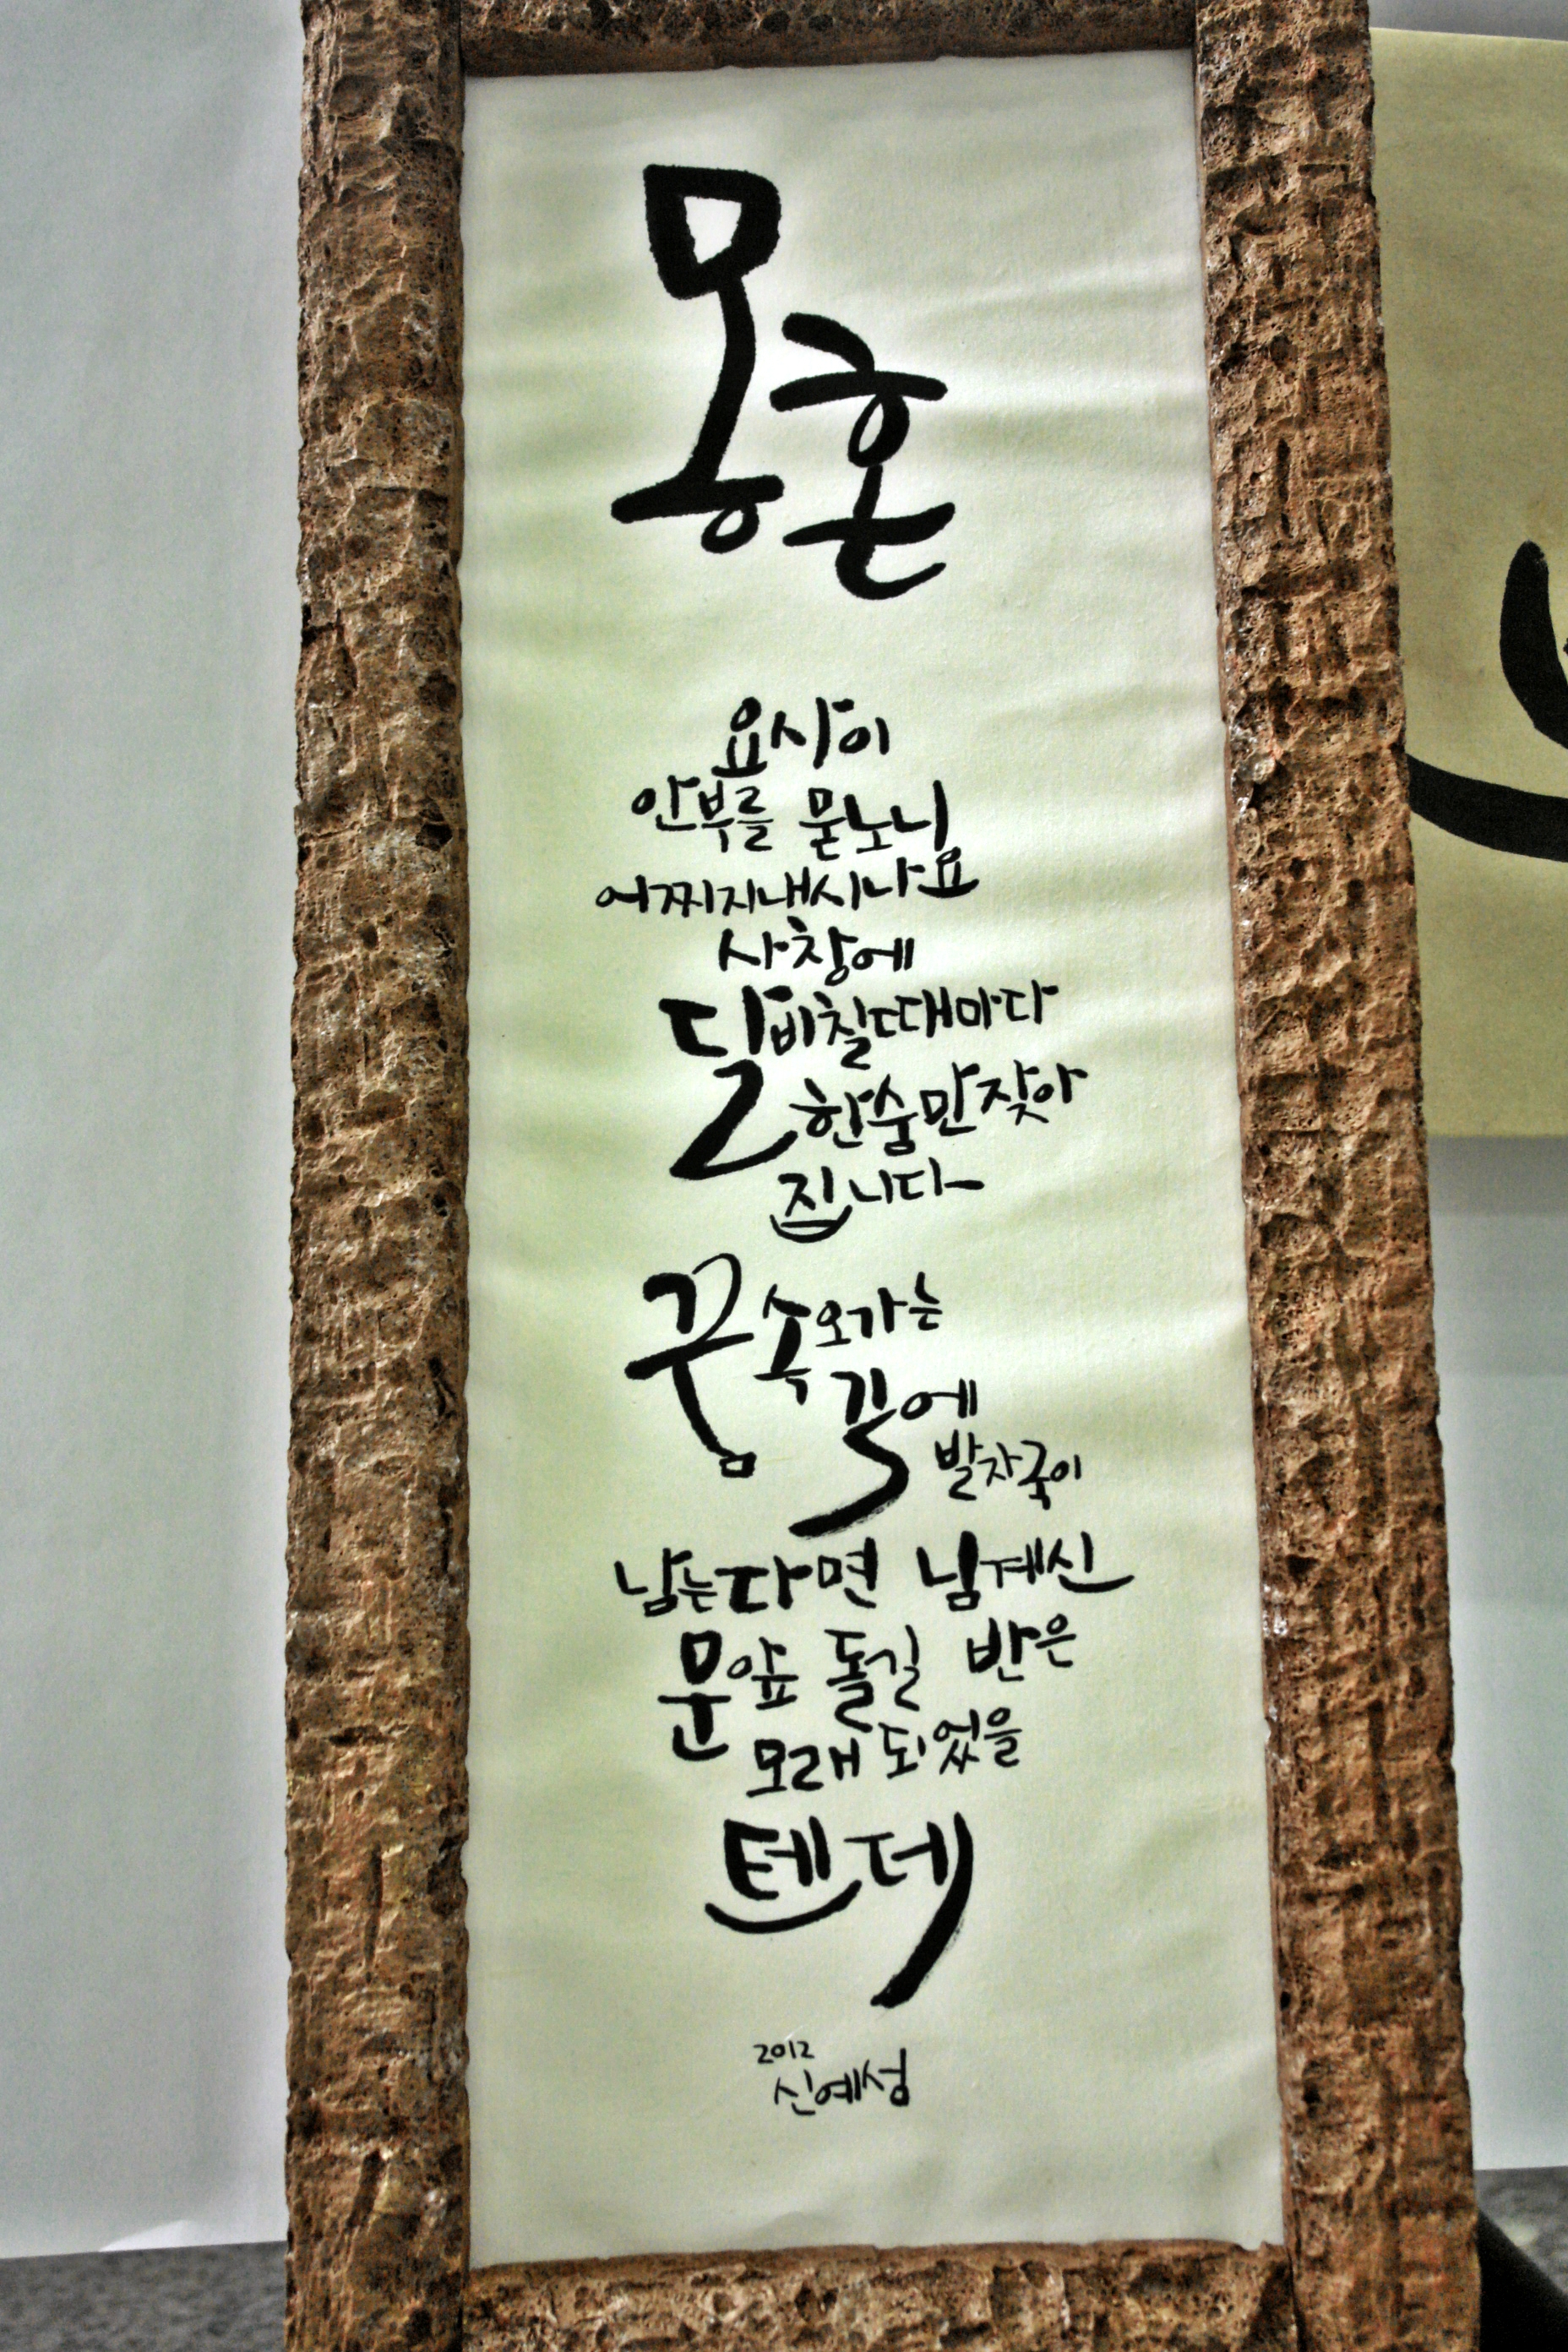 몽혼
요사이
안부를 묻노니
어찌지내시나요
사창에
달비칠때마다
한숨만잦아
집니다
꿈속오가는
길에
발자국이
남는다면 님계신
문앞 돌길 반은
모래 되었을
텐데
2012
신예성